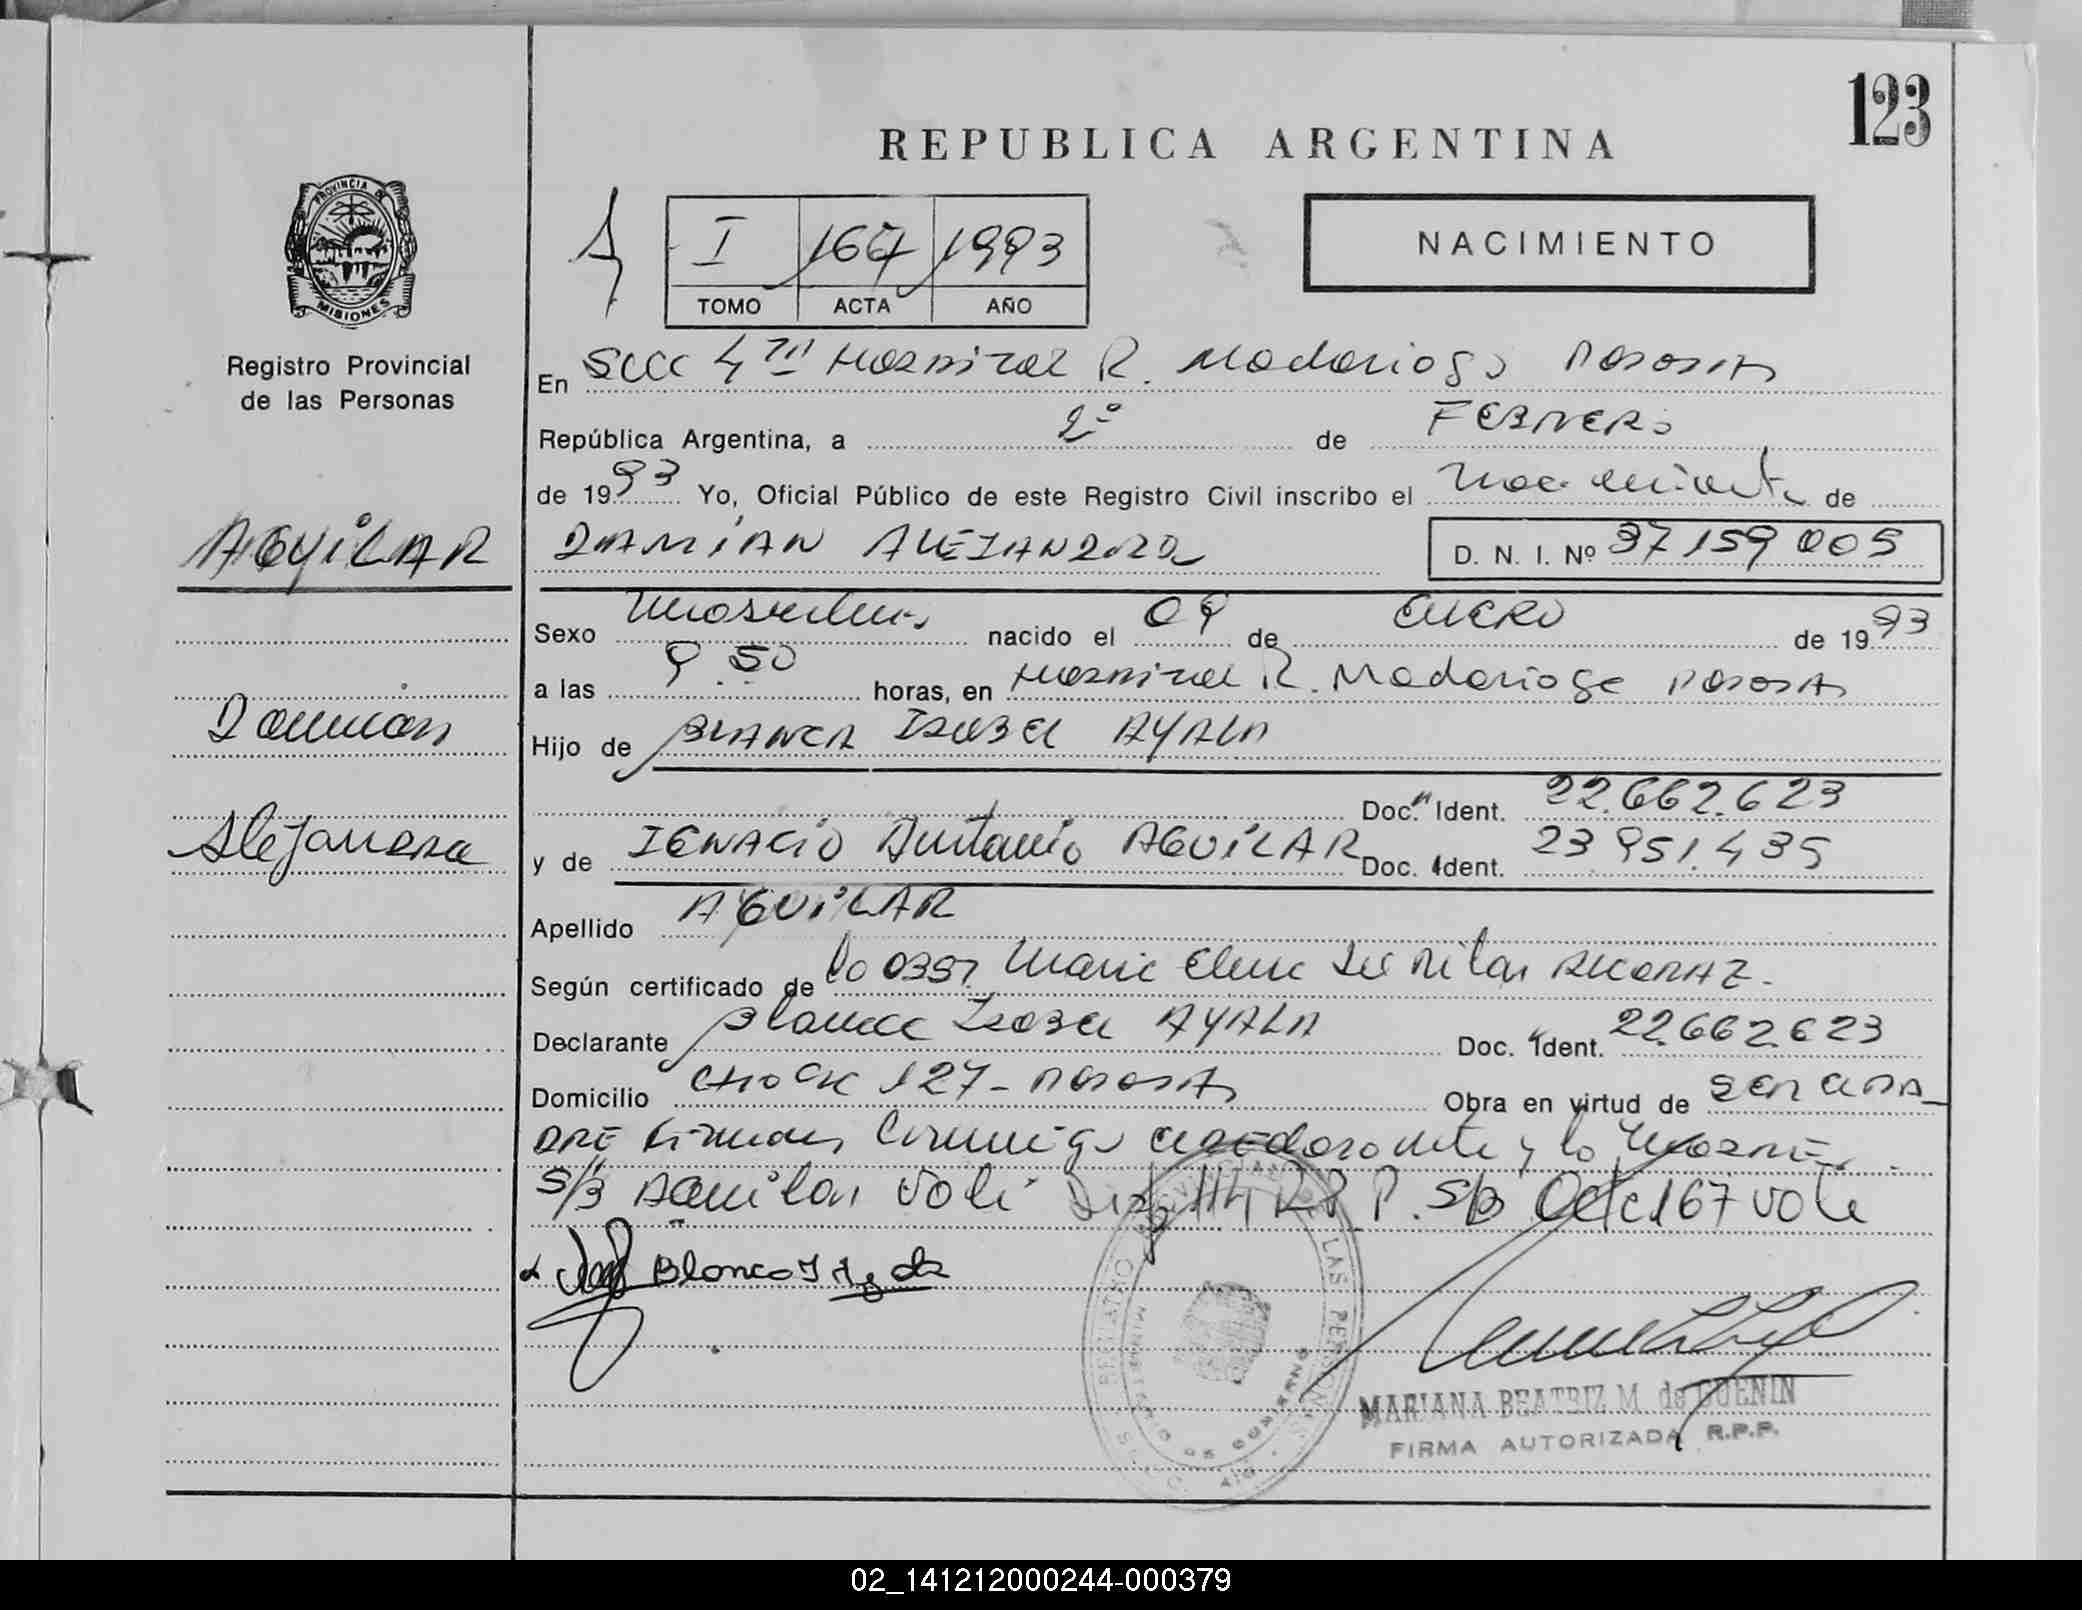 123
REPUBLICA ARGENTINA
PROVINCIA DE
MISIONES
I 167 1993
TOMO ACTA AÑO
NACIMIENTO
Registro Provincial
de las Personas
En Secc 4ta Hospital R. Madariaga Posadas
República Argentina, a 2º de FEBRERO
de 1993 Yo, Oficial Público de este Registro Civil inscribo el nacimiento de
AGUILAR
DAMIAN ALEJANDRO
D. N. I. Nº 37159005
Sexo masculino nacido el 09 de ENERO de 1993
a las 9.50 horas, en Hospital R. Madariaga Posadas
Damian
Hijo de BLANCA Isabel AYALA
Doc. Ident. 22.662.623
Alejandro
y de IGNACIO Antonio AGUILAR Doc. Ident. 23951.435
Apellido AGUILAR
Según certificado de Maria Elena
Declarante Blanca Isabel AYALA Doc. Ident. 22.662.623
Domicilio 127 - Posadas Obra en virtud de ser
Firman Conmigo y la Madre
S/B Aguilar Vale R.P.P. S/B Acta 167 Vale
Blanca I Ayala
REGISTRO PROVINCIAL DE LAS PERSONAS
MINISTERIO DE GOBIERNO
MARIANA BEATRIZ M. de GUENIN
FIRMA AUTORIZADA R.P.P.
02_141212000244-000379